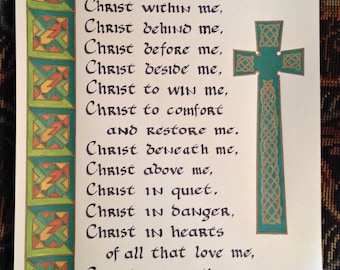 Christ within me,
Christ behind me,
Christ before me,
Christ beside me,
Christ to win me,
Christ to comfort
and restore me.
Christ beneath me,
Christ above me,
Christ in quiet,
Christ in danger,
Christ in hearts
of all that love me,